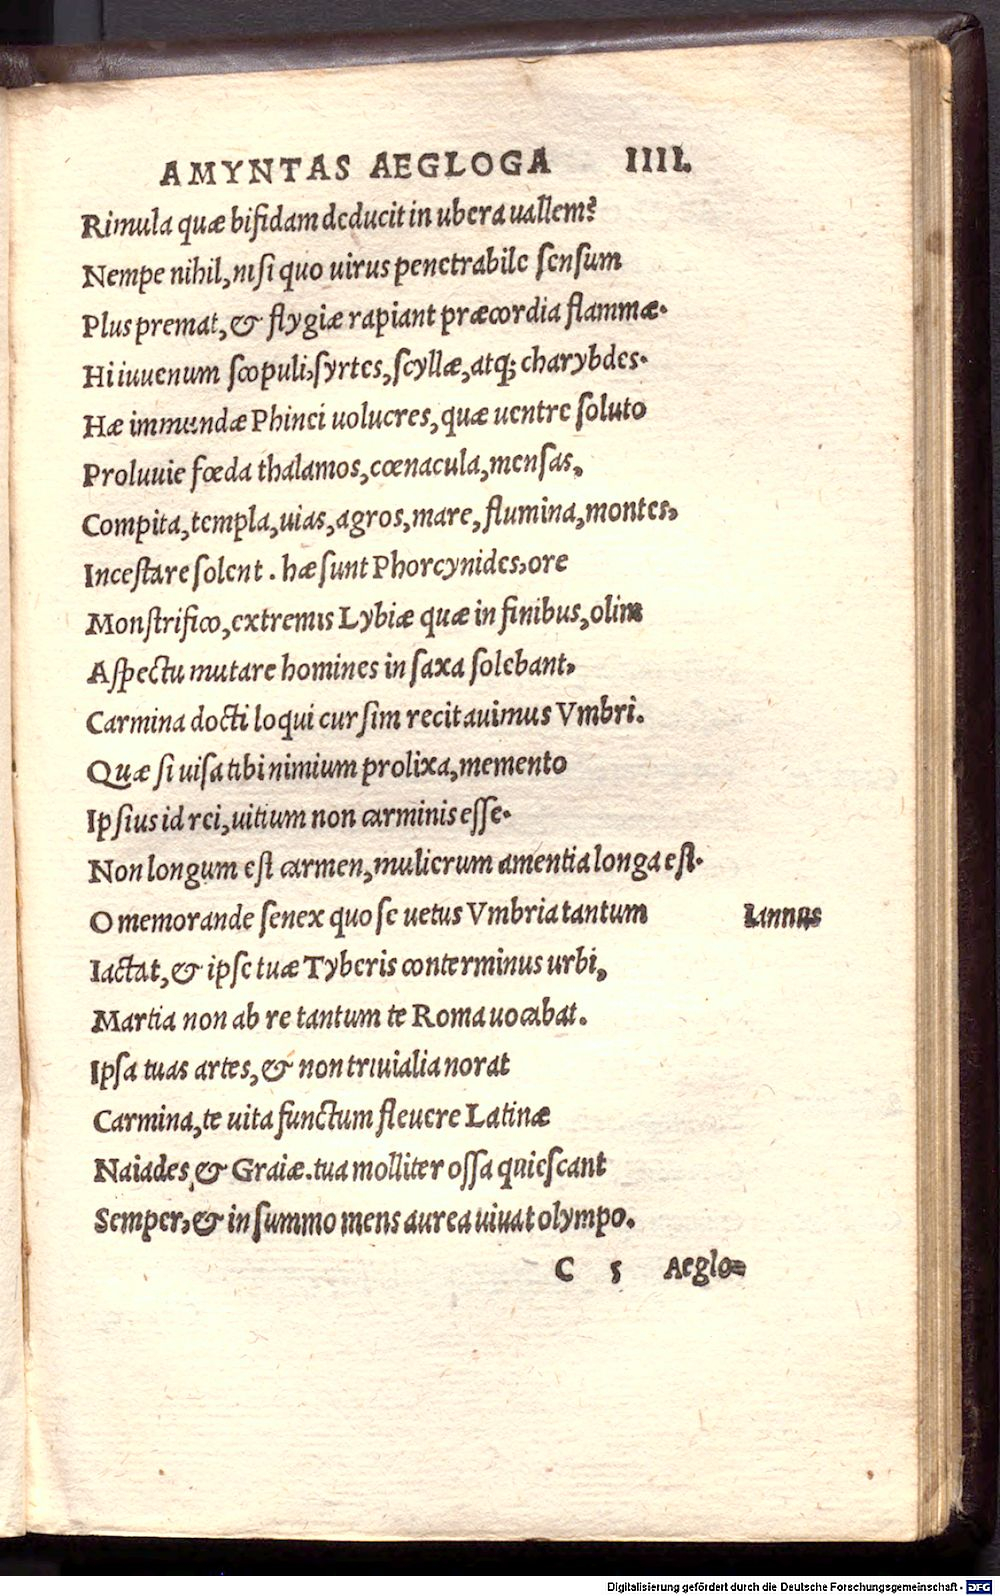 AMYNTAS AEGLOGA IIII.
Rimula quæ bifidam deducit in ubera uallem?
Nempe nihil, nisi quo uirus penetrabile sensum
Plus premat, & stygiæ rapiant præcordia flammæ.
Hi iuuenum scopuli, syrtes, scyllæ, atq; charybdes.
Hæ immundæ Phinei uolucres, quæ uentre soluto
Proluuie fœda thalamos, cœnacula, mensas,
Compita, templa, uias, agros, mare, flumina, montes,
Incestare solent. hæ sunt Phorcynides, ore
Monstrifico, extremis Lybiæ quæ in finibus, olim
Aspectu mutare homines in saxa solebant,
Carmina docti loqui cursim recitauimus Vmbri.
Quæ si uisa tibi nimium prolixa, memento
Ipsius id rei, uitium non carminis esse.
Non longum est carmen, mulierum amentia longa est.
O memorande senex quo se uetus Vmbria tantum Iannus
Iactat, & ipse tuæ Tyberis conterminus urbi,
Martia non ab re tantum te Roma uocabat.
Ipsa tuas artes, & non triuialia norat
Carmina, te uita functum fleuere Latinæ
Naiades, & Graiæ. tua molliter ossa quiescant
Semper, & in summo mens aurea uiuat olympo.
C 5 Aeglo=
Digitalisierung gefördert durch die Deutsche Forschungsgemeinschaft - DFG